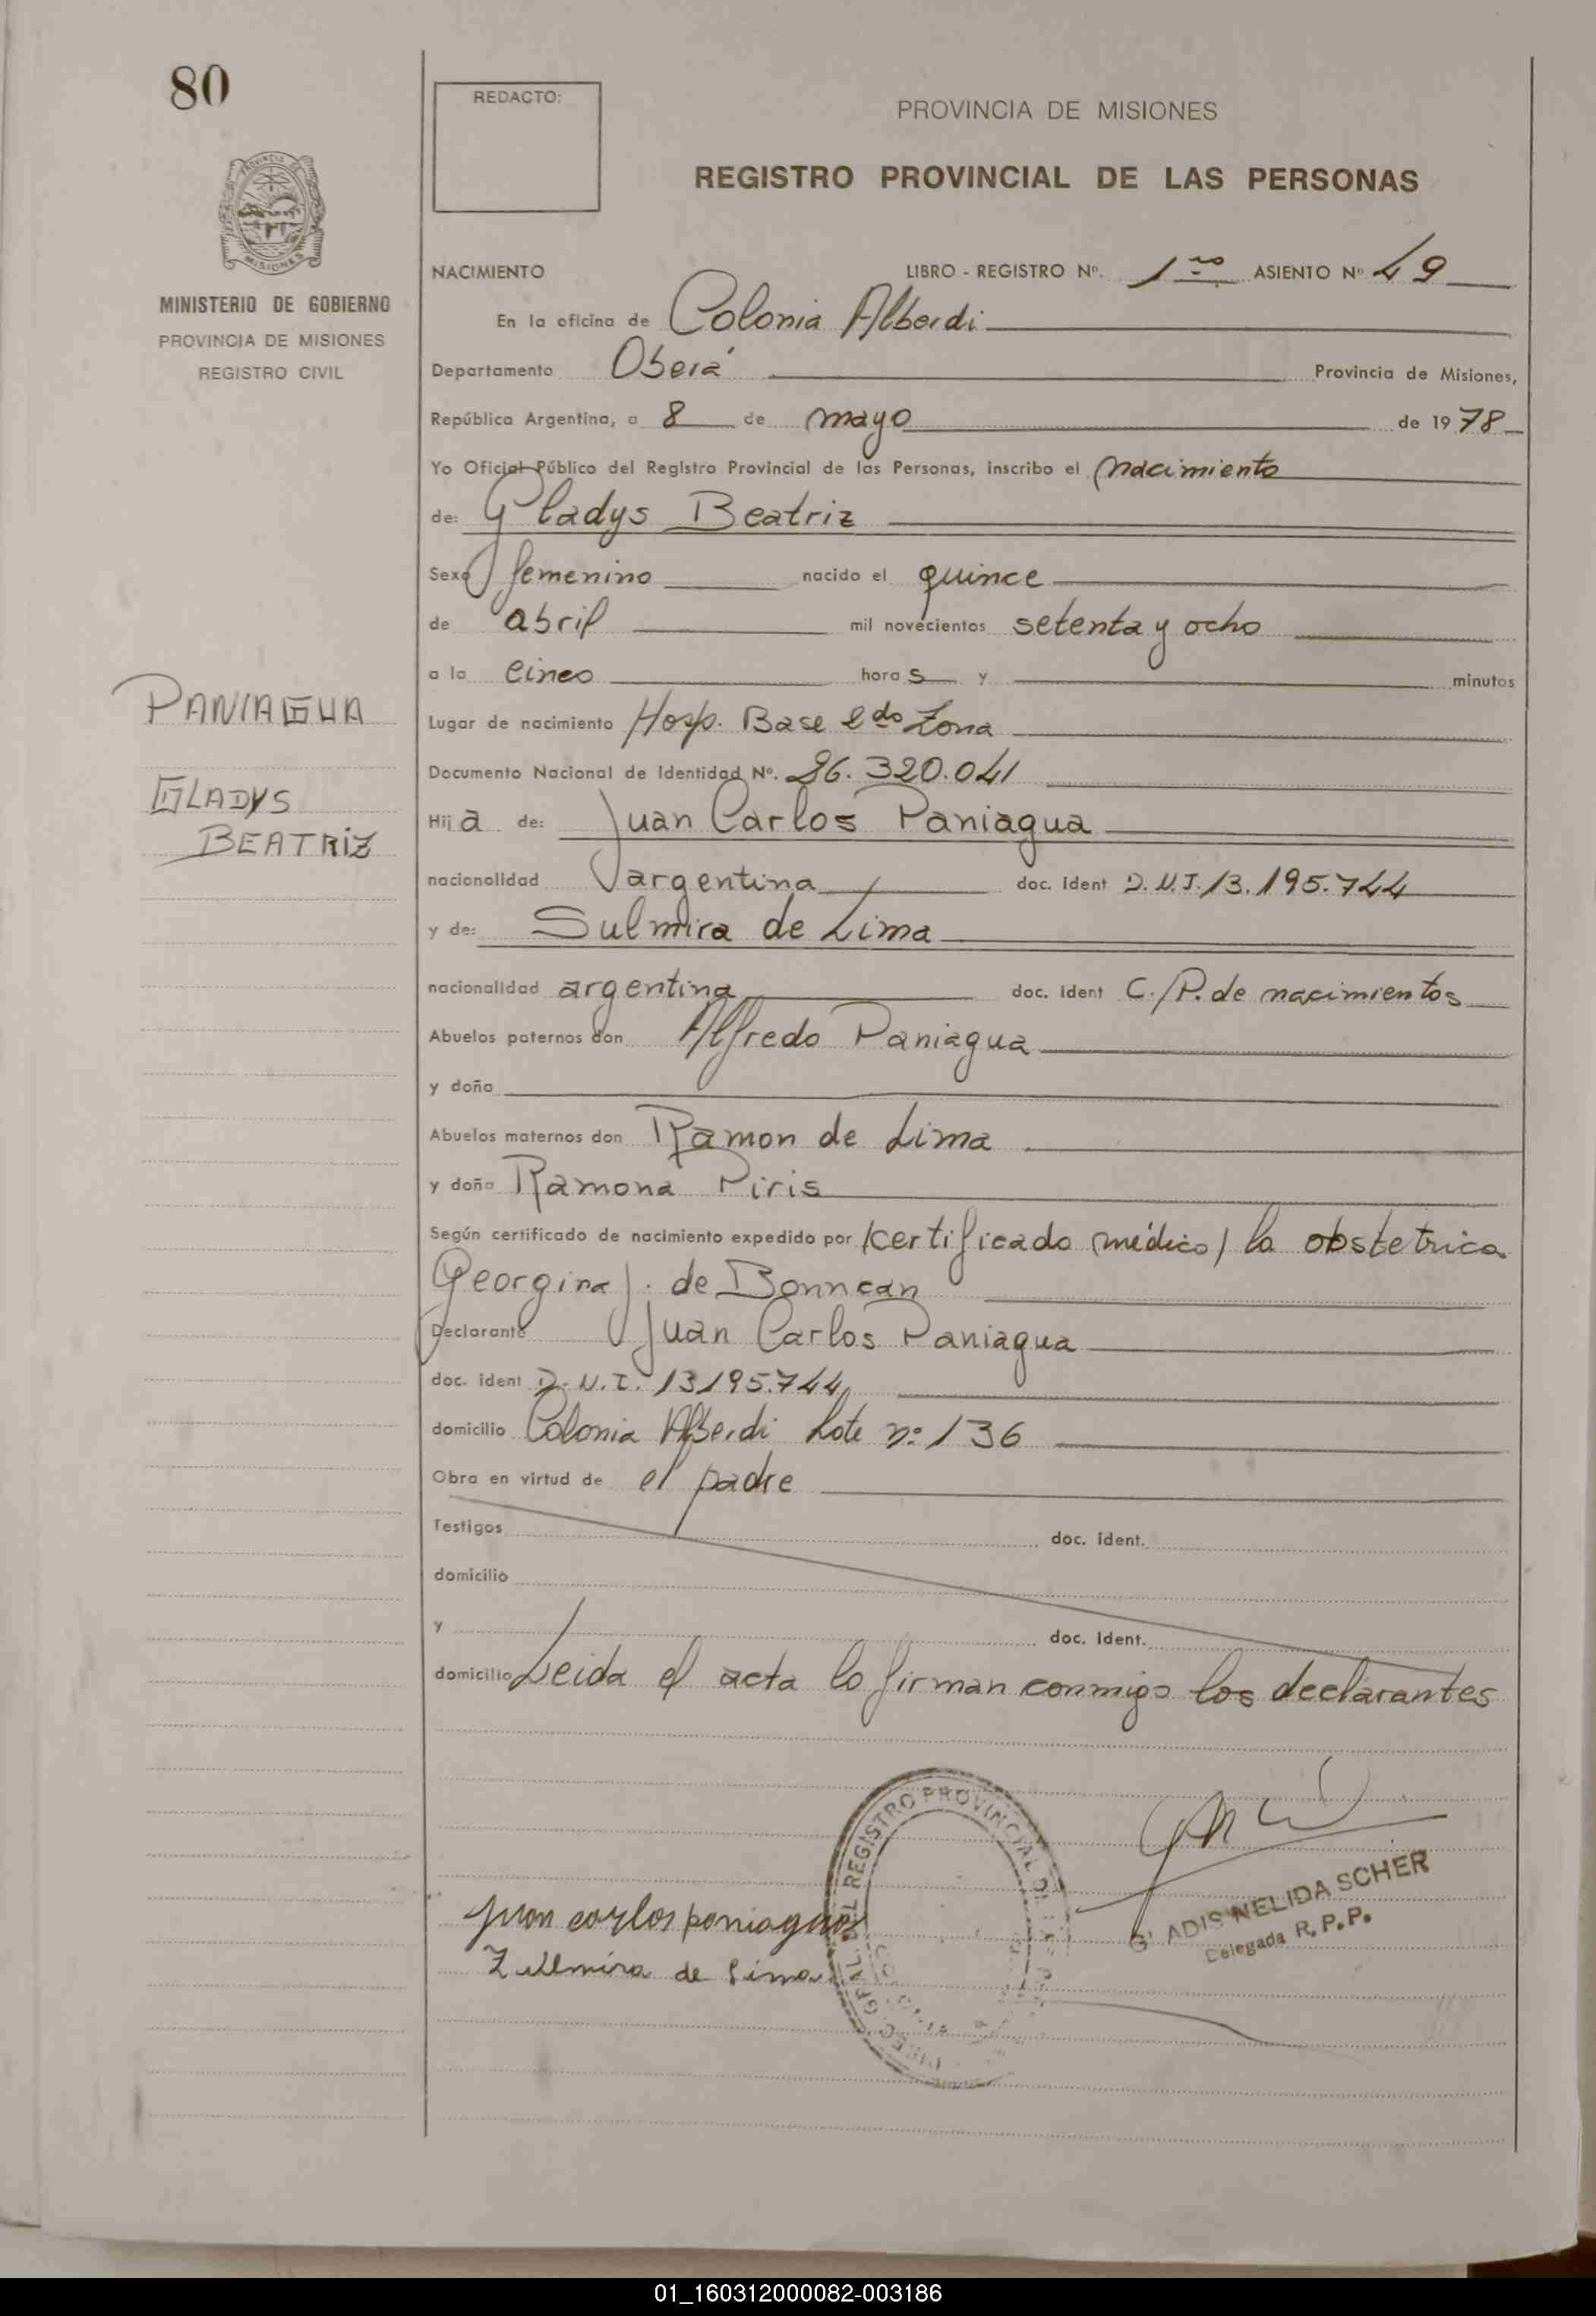 80
REDACTO:
PROVINCIA DE MISIONES
REGISTRO PROVINCIAL DE LAS PERSONAS
PROVINCIA DE
MISIONES
MINISTERIO DE GOBIERNO
PROVINCIA DE MISIONES
REGISTRO CIVIL
NACIMIENTO LIBRO - REGISTRO Nº. 1ro ASIENTO Nº 49
En la oficina de Colonia Alberdi
Departamento Oberá Provincia de Misiones,
República Argentina, a 8 de mayo de 1978
Yo Oficial Público del Registro Provincial de las Personas, inscribo el nacimiento
de: Gladys Beatriz
Sexo femenino nacido el quince
de abril mil novecientos setenta y ocho
a la cinco horas y minutos
PANIAGUA
Lugar de nacimiento Hosp. Base 2do Zona
Documento Nacional de Identidad Nº. 26.320.041
GLADYS
BEATRIZ
Hija de: Juan Carlos Paniagua
nacionalidad argentina doc. ident D.N.I. 13.195.744
y de: Sulmira de Lima
nacionalidad argentina doc. ident C./P. de nacimientos
Abuelos paternos don Alfredo Paniagua
y doña
Abuelos maternos don Ramon de Lima
y doña Ramona Piris
Según certificado de nacimiento expedido por (certificado médico) la obstetrica
Georgina J. de Bonnean
Declarante Juan Carlos Paniagua
doc. ident D.N.I. 13195.744
domicilio Colonia Alberdi Lote nº 136
Obra en virtud de el padre
Testigos doc. ident.
domicilio
y doc. ident.
domicilio Leida el acta lo firman conmigo los declarantes
REGISTRO PROVINCIAL DE
juan carlos paniagua
Zulmira de Lima
GLADIS NELIDA SCHER
Delegada R.P.P.
01_160312000082-003186